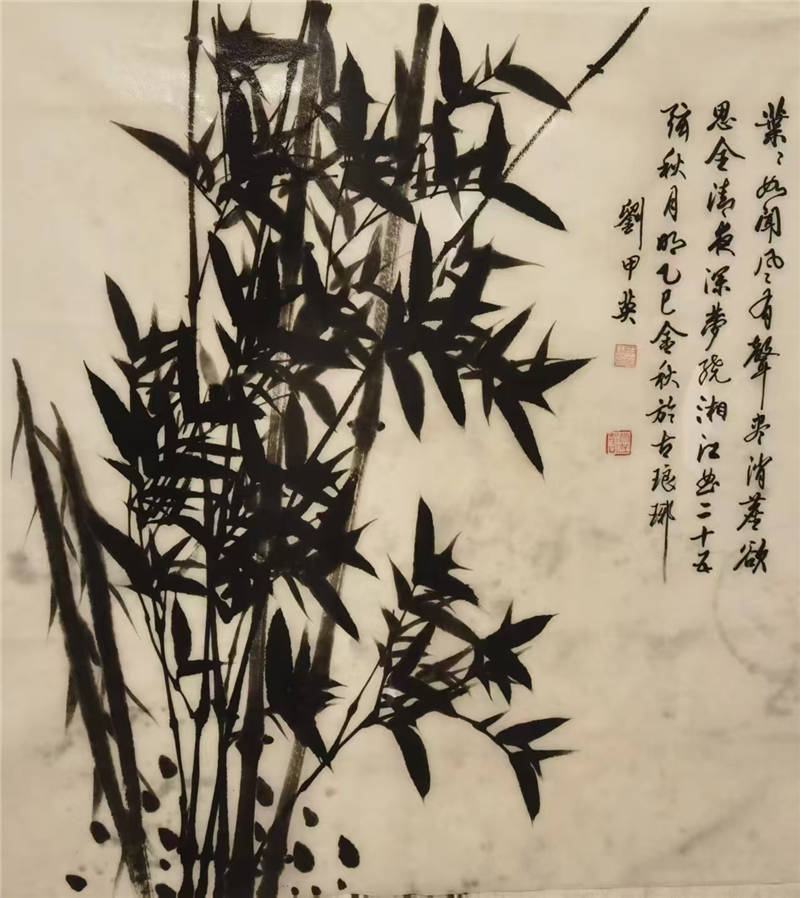 葉〻如聞风有聲尽消塵欲
思全清夜深夢绕湘江曲二十五
弦秋月明乙巳金秋於古琅琊
劉甲英